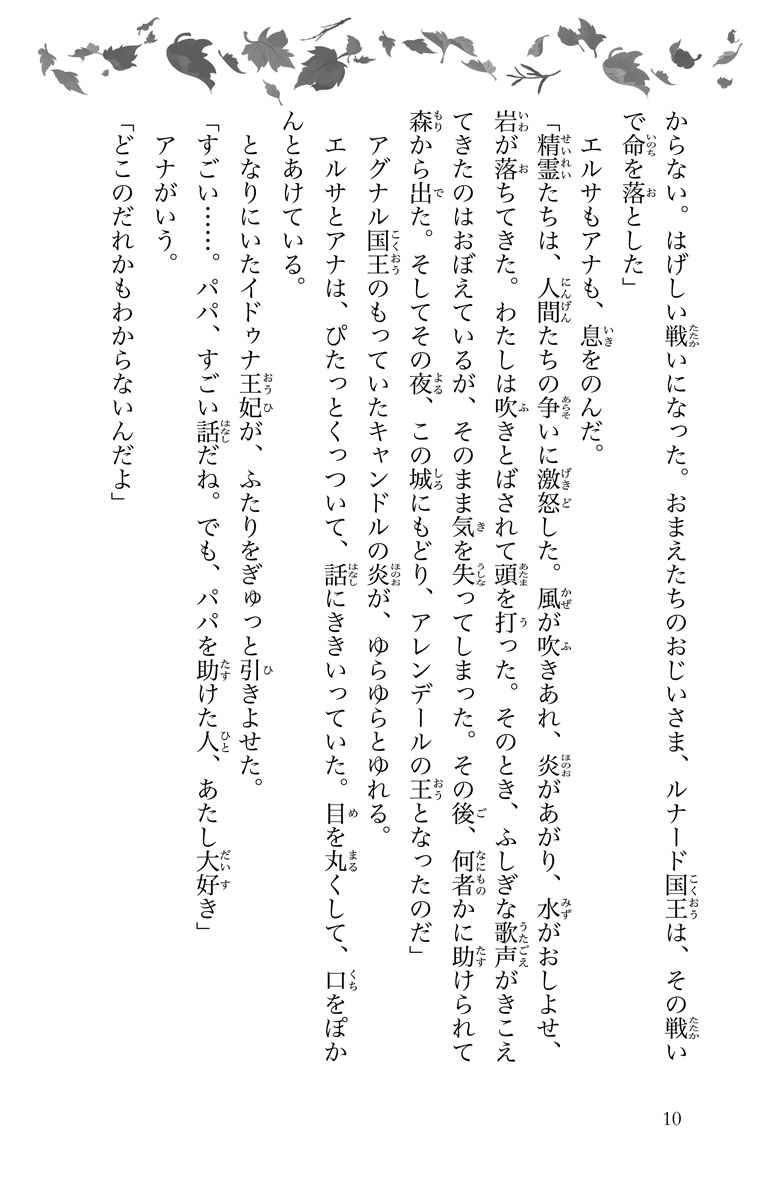 からない。はげしい戦いになった。おまえたちのおじいさま、ルナード国王は、その戦い
で命を落とした」
エルサもアナも、息をのんだ。
「精霊たちは、人間たちの争いに激怒した。風が吹きあれ、炎があがり、水がおしよせ、
岩が落ちてきた。わたしは吹きとばされて頭を打った。そのとき、ふしぎな歌声がきこえ
てきたのはおぼえているが、そのまま気を失ってしまった。その後、何者かに助けられて
森から出た。そしてその夜、この城にもどり、アレンデールの王となったのだ」
アグナル国王のもっていたキャンドルの炎が、ゆらゆらとゆれる。
エルサとアナは、ぴたっとくっついて、話にききいっていた。目を丸くして、口をぽか
んとあけている。
となりにいたイドゥナ王妃が、ふたりをぎゅっと引きよせた。
「すごい……。パパ、すごい話だね。でも、パパを助けた人、あたし大好き」
アナがいう。
「どこのだれかもわからないんだよ」
10